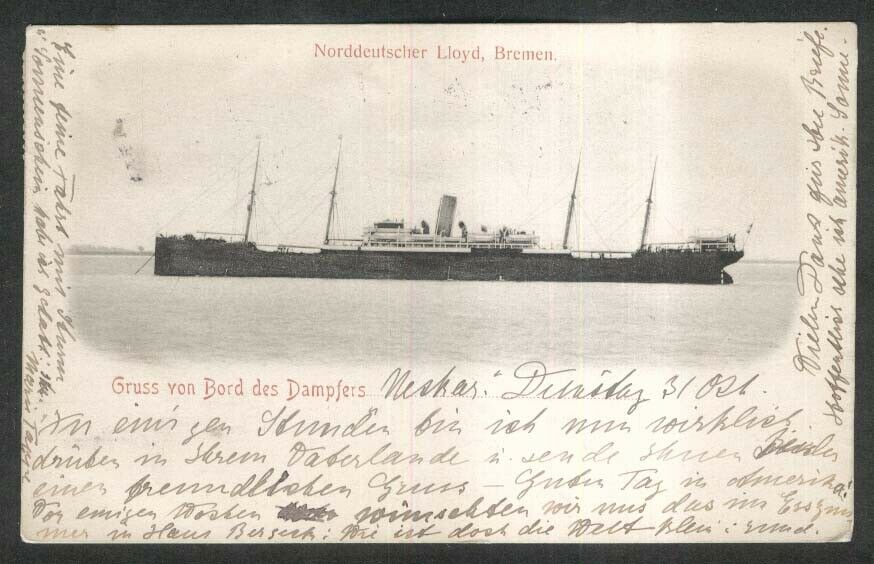 Norddeutscher Lloyd, Bremen.
Gruss von Bord des Dampfers Neckar. Dienstag 31 Oct.
In einigen Stunden bin ich nun wirklich
drüben in Ihrem Vaterlande u. sende Ihnen
einen freundlichen Gruss – Guten Tag in Amerika!
Vor einigen Wochen wünschten wir uns das im
mer in Haus Berseck: Wie ist doch die Welt klein: rund.
Eine feine Fahrt mit Sturm
u. Sonnenschein habe ich gehabt:
Vielen Dank für Ihre Briefe.
Hoffentlich sehe ich amerik. Sonne.